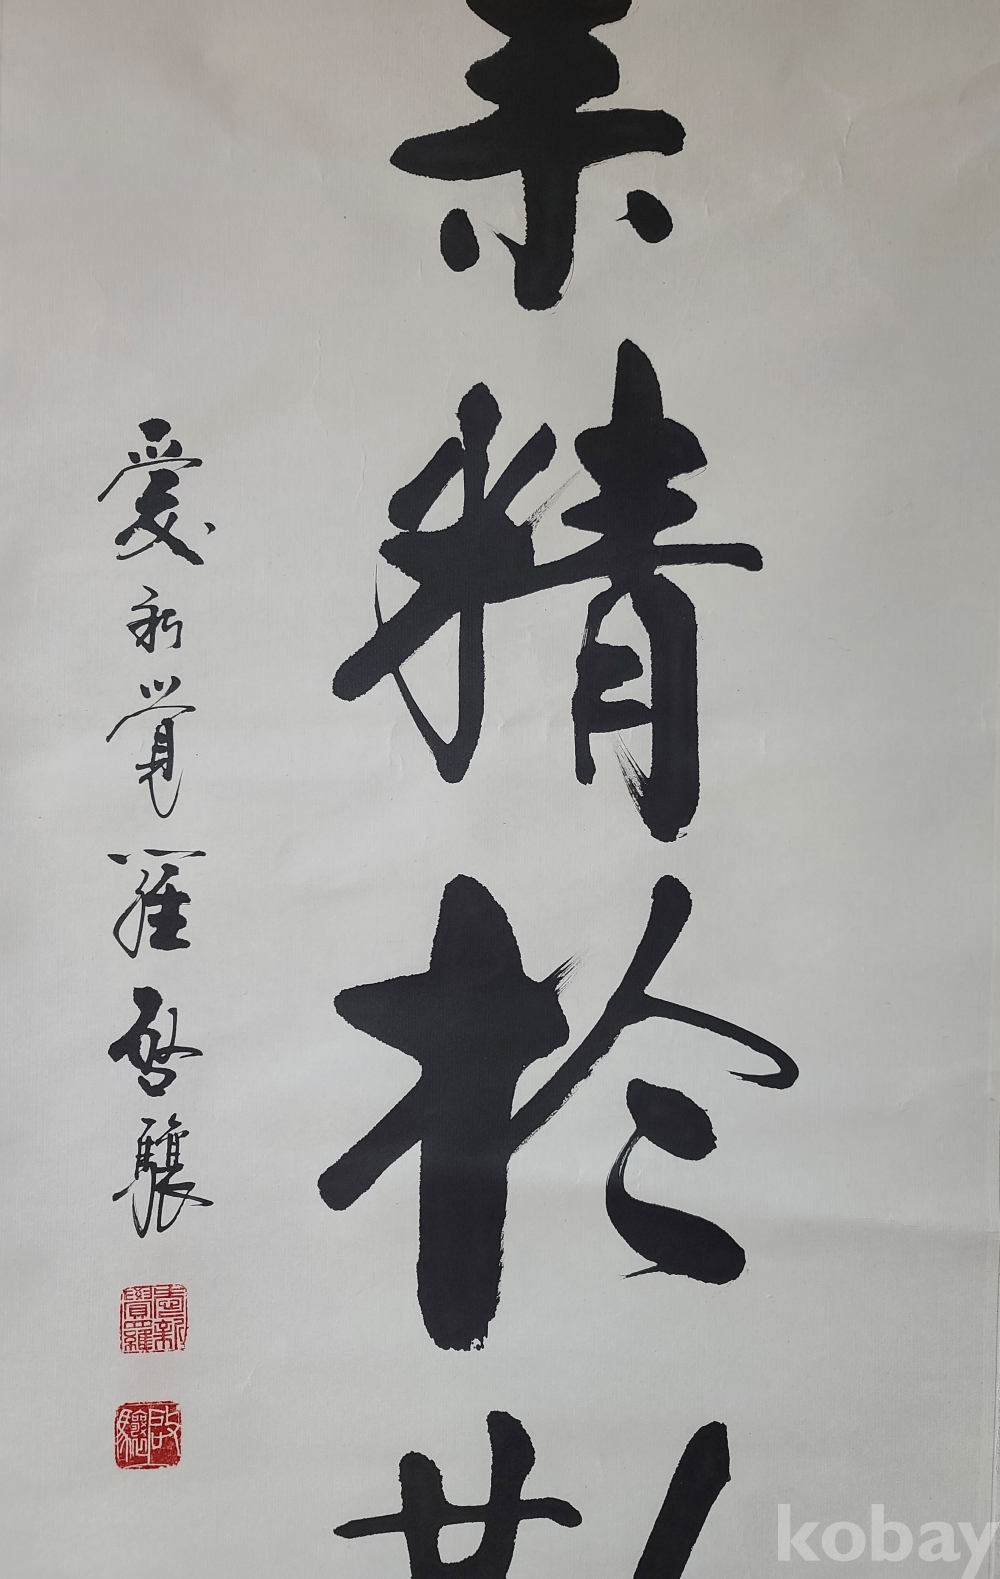 業精於勤
愛新覺羅啟驤
愛新覺羅
啟驤
kobay